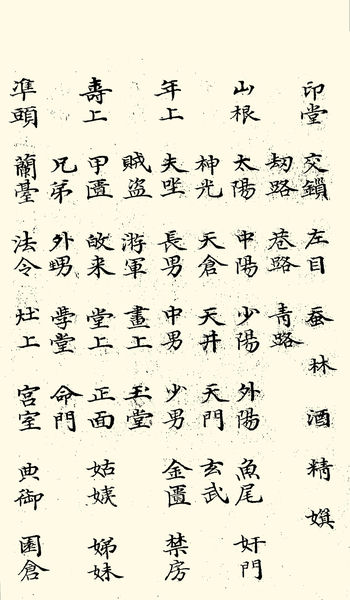 印堂 交鎖 左目 蚕 林 酒 精 嬪
刼路 巷路 青路
山根 太陽 中陽 少陽 外陽 魚尾 奸門
神光 天倉 天井 天門 玄武
年上 夫坐 長男 中男 少男 金匱 禁房
賊盗 游軍 畫上 玉堂
壽上 甲匱 皈来 堂上 正面 姑姨 娣妹
兄弟 外甥 學堂 命門
準頭 蘭臺 法令 灶上 宮室 典御 園倉